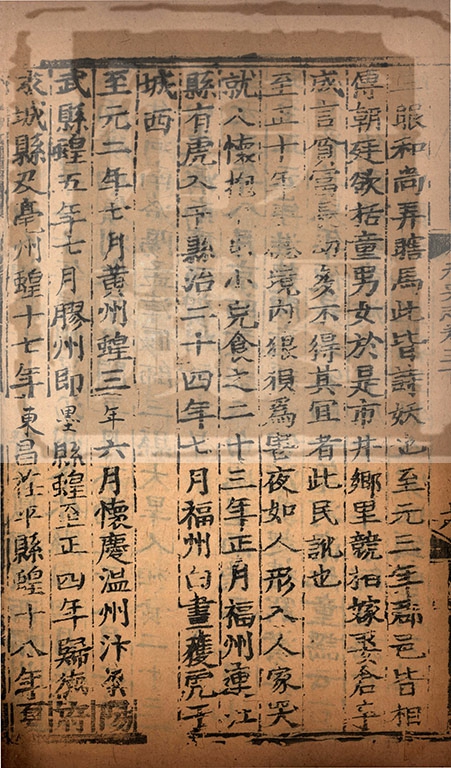 一眼和尚弄瞎馬此皆詩妖也至元三年郡邑皆相
傳朝廷欲括童男女於是市井鄉里競相嫁娶倉卒
成言貧富長幼多不得其宜者此民訛也
至正十年彰德境內狼狽為害夜如人形入人家哭
就人懷抱中取小兒食之二十三年正月福州連江
縣有虎入于縣治二十四年七月福州白晝獲虎于
城西
至元二年七月黃州蝗三年六月懷慶溫州汴梁陽
武縣蝗五年七月膠州即墨縣蝗至正四年歸德府
永城縣及亳州蝗十七年東昌茌平縣蝗十八年夏